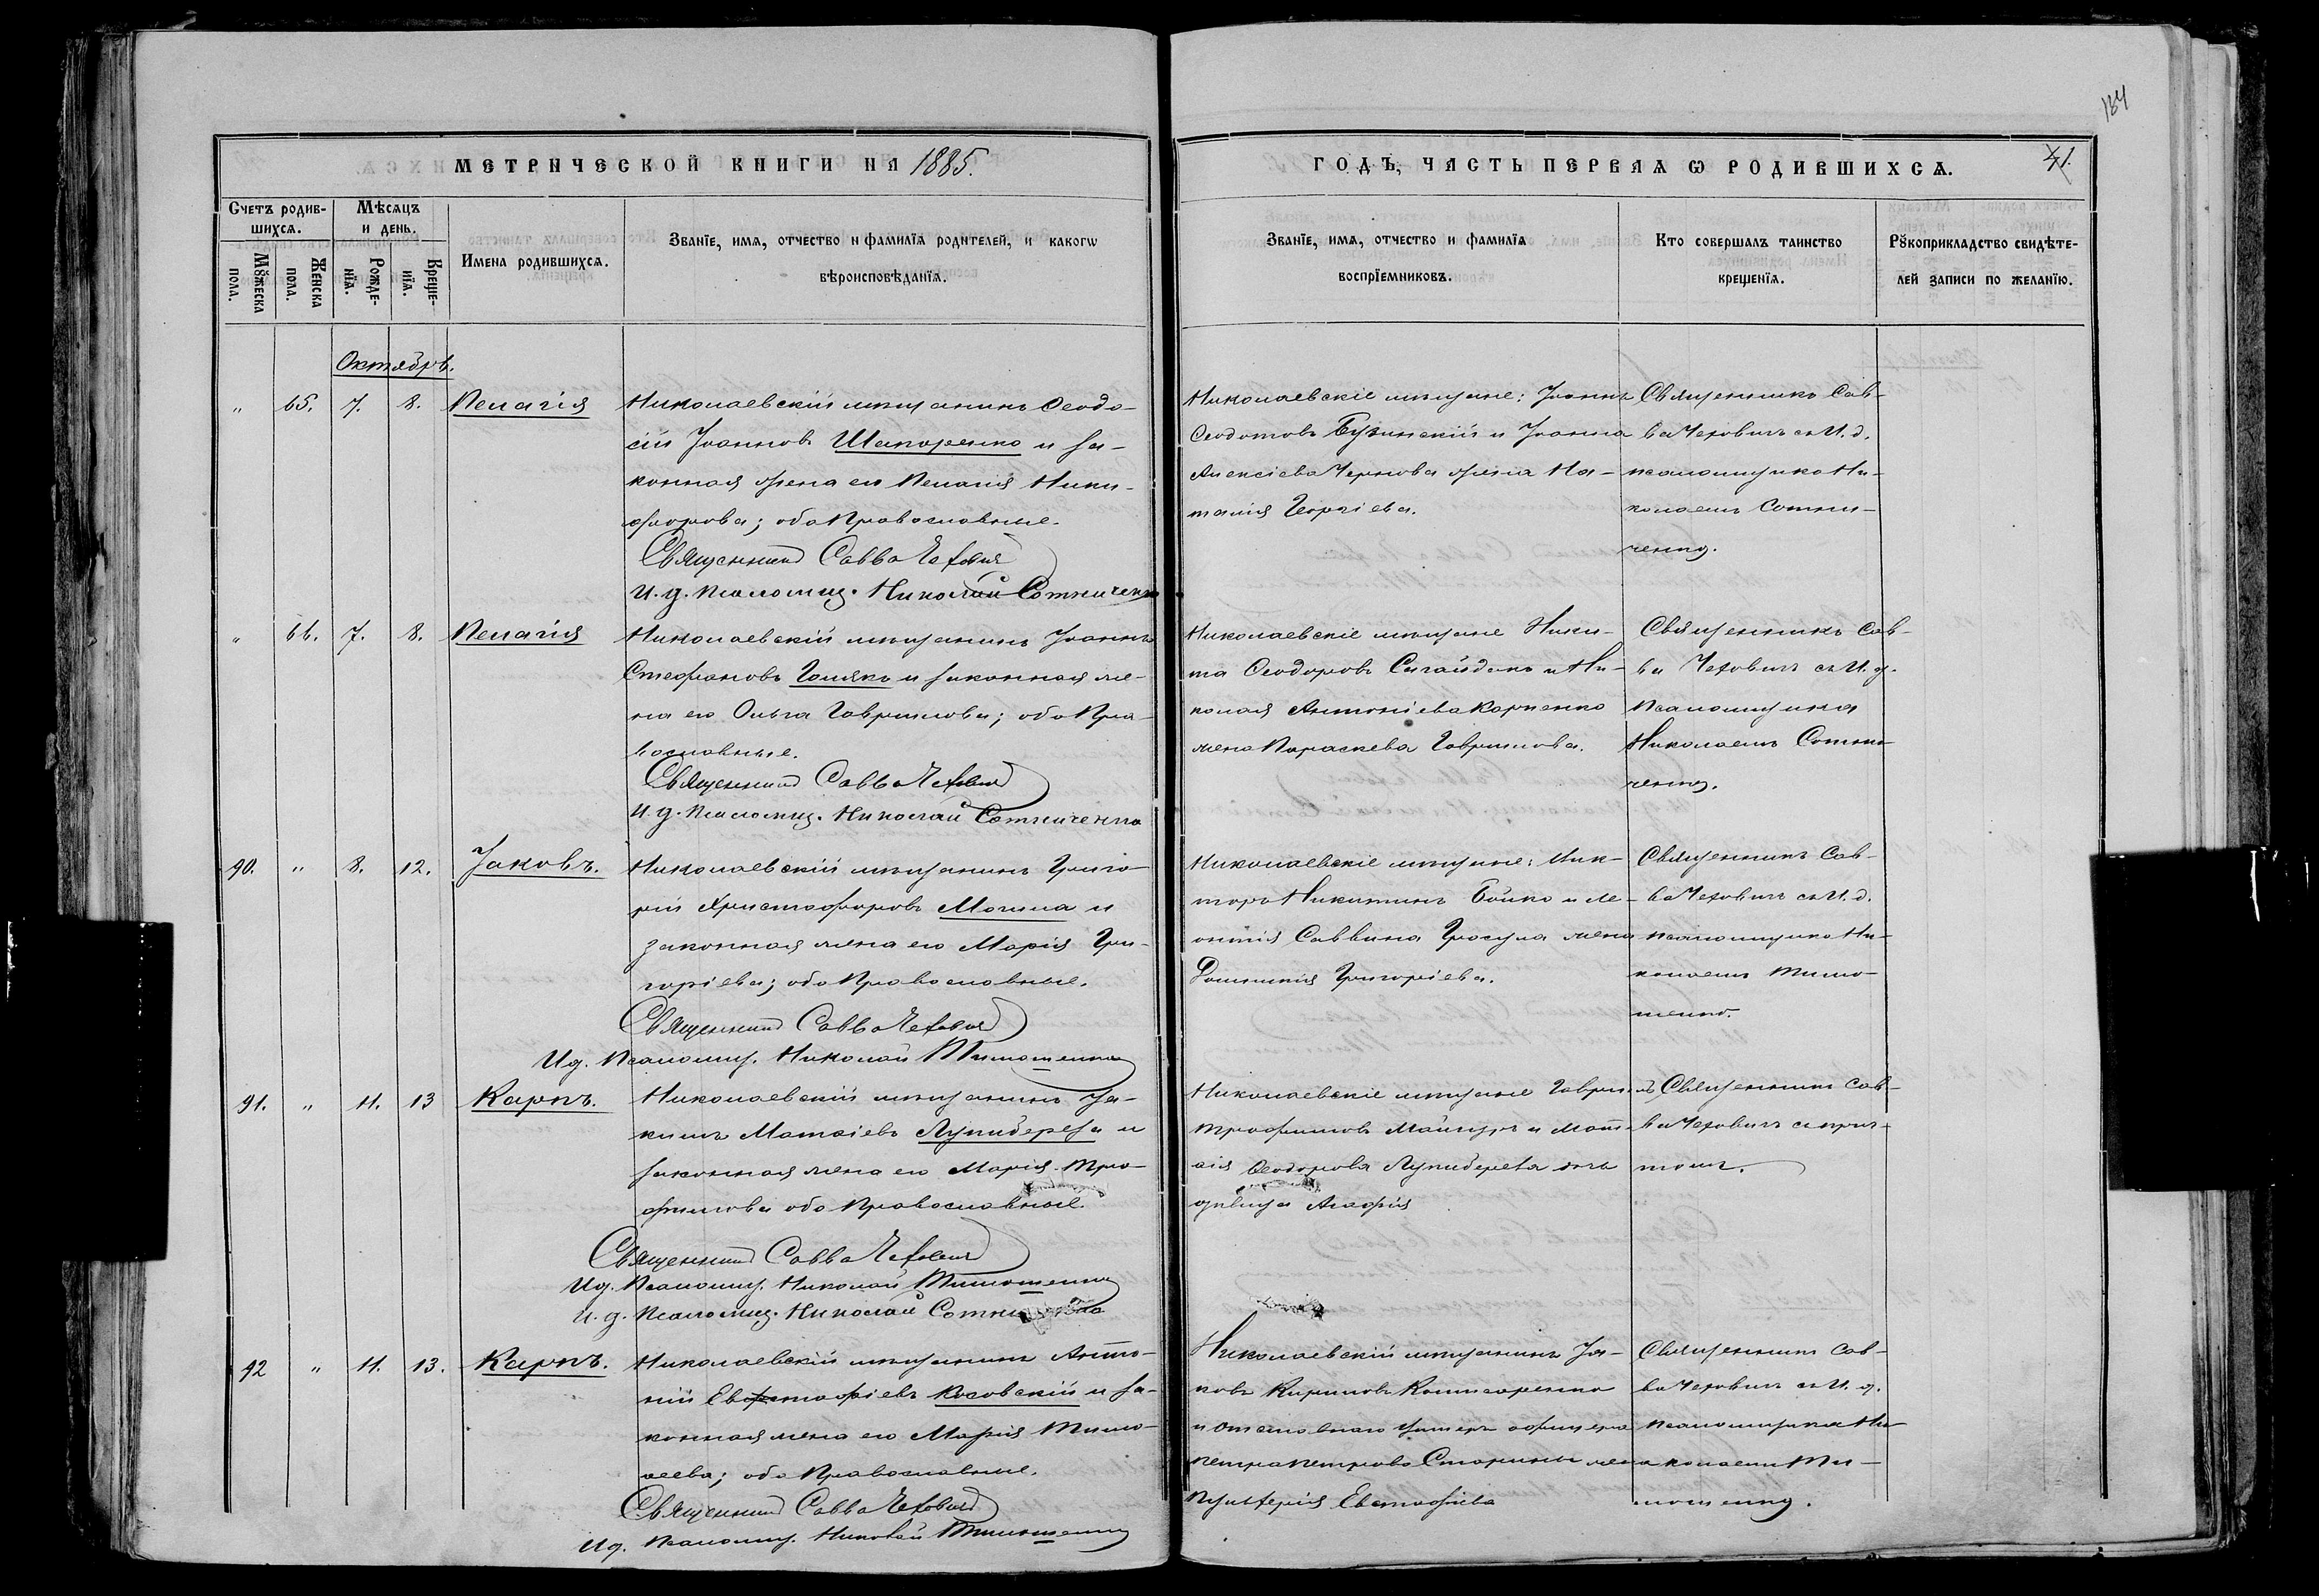 134
МЕТРИЧЕСКОЙ КНИГИ НА 1885.
ГОДЪ, ЧАСТЬ ПЕРВАЯ Ѡ РОДИВШИХСЯ.
41.
Счетъ родив-
шихся.
Мѣсяцъ
и день.
Мꙋжеска
пола.
Женска
пола.
Рожде-
нїя.
Креще-
нїя.
Имена родившихся.
Званїе, имя, отчество и фамилїя родителей, и какогѡ
вѣроисповѣданїя.
Званїе, имя, отчество и фамилїя
воспрїемниковъ.
Кто совершалъ таинство
крещенїя.
Рꙋкоприкладство свидѣте-
лей записи по желанїю.
Октябрь.
" 65. 7. 8. Пелагія
Николаевскій мѣщанинъ Ѳеодо-
сій Іоанновъ Шапоренко и за-
конная жена его Пелагія Ники-
форова; оба Православные.
Священникъ Савва Чеховичъ
И. д. Псаломщ. Николай Сотниченко
Николаевскіе мѣщане: Іоаннъ
Ѳеодотовъ Бузинскій и Іоанна
Алексіева Чернова жена На-
талія Георгіева.
Священникъ Сав-
ва Чеховичъ съ И. д.
псаломщика Ни-
колаемъ Сотни-
ченко.
" 66. 7. 8. Пелагія
Николаевскій мѣщанинъ Іоаннъ
Стефановъ Голякъ и законная же-
на его Ольга Гаврилова; оба Пра-
вославные.
Священникъ Савва Чеховичъ
И. д. Псаломщ. Николай Сотниченко
Николаевскіе мѣщане Ники-
та Ѳеодоровъ Сагайдакъ и Ни-
колая Антоніева Карпенко
жена Параскева Гаврилова.
Священникъ Сав-
ва Чеховичъ съ И. д.
Псаломщика
Николаемъ Сотни-
ченко.
90. " 8. 12. Іаковъ.
Николаевскій мѣщанинъ Григо-
рій Христофоровъ Могила и
законная жена его Марія Гри-
горіева; оба Православные.
Священникъ Савва Чеховичъ
И д. Псаломщ. Николай Тимошенко
Николаевскіе мѣщане: Вик-
торъ Никитинъ Бойко и Ле-
онтія Саввина Гросула жена
Домникія Григоріева.
Священникъ Сав-
ва Чеховичъ съ И. д.
псаломщика Ни-
колаемъ Тимо-
шенко.
91. " 11. 13 Карпъ.
Николаевскій мѣщанинъ Іа-
кимъ Матѳіевъ Лупибереза и
законная жена его Марія Тро-
фимова оба Православные.
Священникъ Савва Чеховичъ
И д. Псаломщ. Николай Тимошенко
И. д. Псаломщ. Николай Сотниченко
Николаевскіе мѣщане Гавріилъ
Трофимовъ и Мат-
ѳія Ѳеодорова Лупибереза дочь
дѣвица Агафія
Священникъ Сав-
ва Чеховичъ съ прич-
томъ.
92 " 11. 13. Карпъ.
Николаевскій мѣщанинъ Анто-
ній Евстафіевъ Косовскій и за-
конная жена его Марія Тимо-
ѳеева; оба Православные.
Священникъ Савва Чеховичъ
И д. Псаломщ. Николай Тимошенко
Николаевскій мѣщанинъ Іа-
ковъ Кириловъ Комисаренко
и отставнаго унтеръ офицера
Петра Петрова Старины жена
Пульхерія Евстафіева
Священникъ Сав-
ва Чеховичъ съ И. д.
псаломщика Ни-
колаемъ Ти-
мошенко.